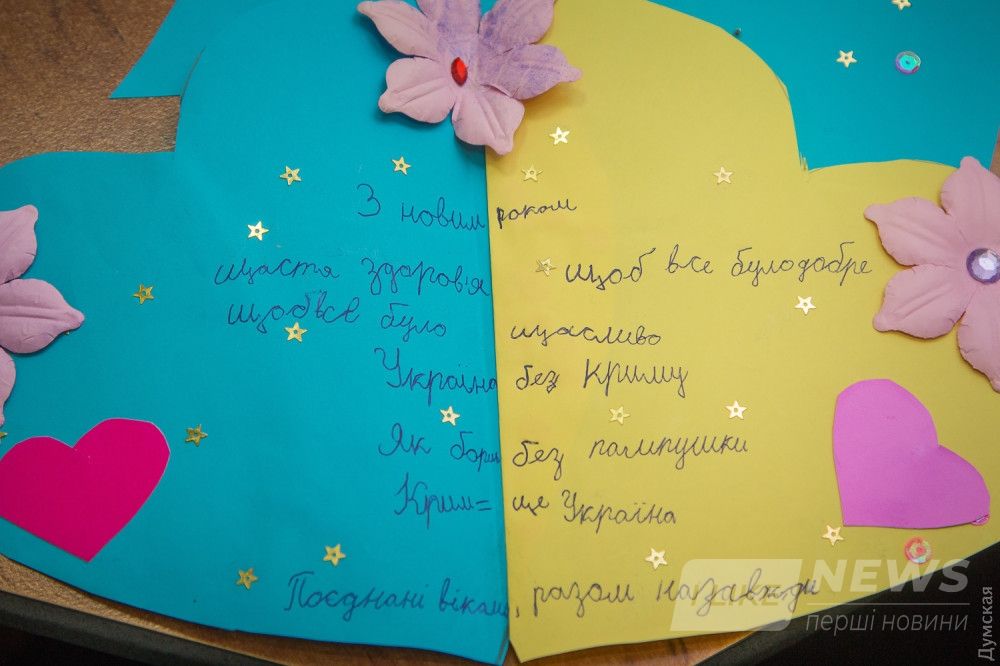 З новим роком
щастя здоров'я щоб все булодобре
щобвсє було щасливо
Україна без Криму
Як борщ без пампушки
Крим= це Україна
Поєднані віками, разом назавжди
LIKE NEWS
перші новини
Думская